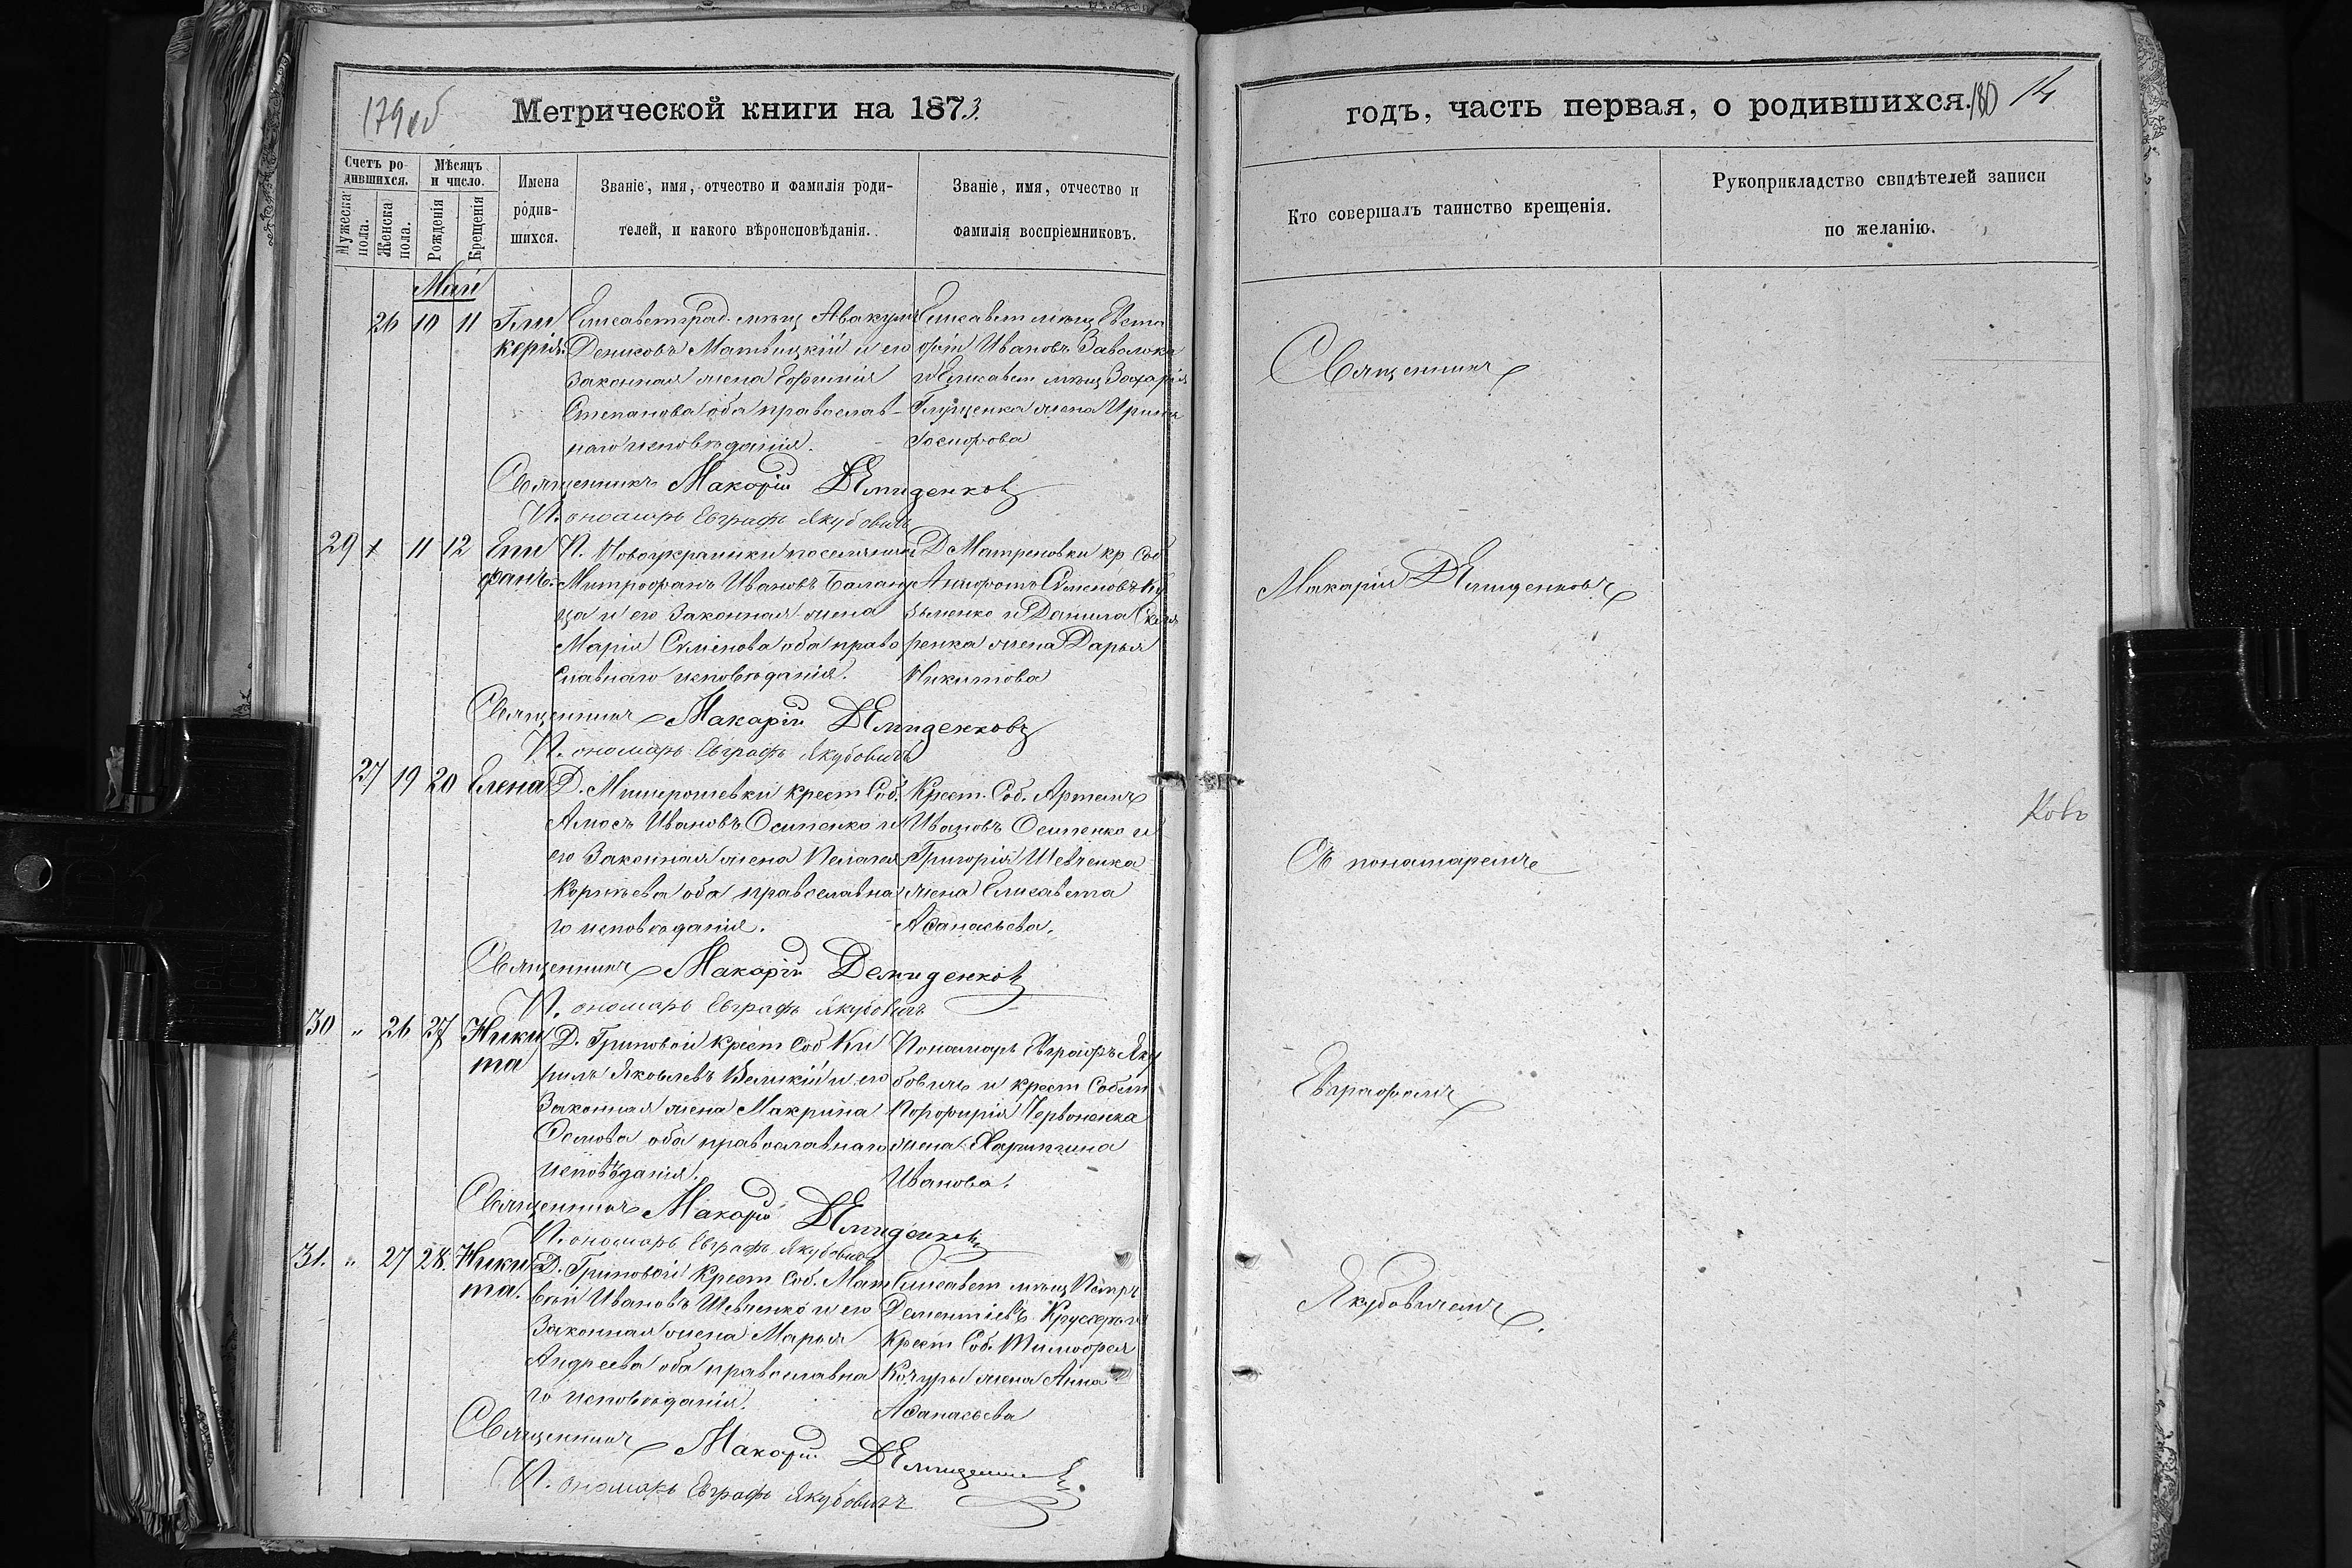 179об
Метрической книги на 1873.
Счетъ родившихся.
Мѣсяцъ и число.
Мужеска пола.
Женска пола.
Рожденія
Крещенія
Имена родившихся.
Званіе, имя, отчество и фамилія родителей, и какого вѣроисповѣданія.
Званіе, имя, отчество и фамилія воспріемниковъ.
Май
26 10 11 Гли
керія
Елисаветград. мѣщ Авакумъ
Денисовъ Матвицкій и его
законная жена Евфимія
Степанова оба православ-
наго исповѣданія.
Елисавет мѣщ Евста
фій Ивановъ Заволока
и Елисавет мѣщ Захарія
Глущенка жена Ирина
Іосифова
Священникъ Макарій Демиденковъ
Пономарь Евграфъ Якубовичъ
29 11 12 Епи
фанъ.
П. Новоукраинки поселянинъ
Митрофанъ Ивановъ Баланд
ца и его законная жена
Марія Семенова оба право
славнаго исповѣданія.
Д Матреновки кр Соб
Семеновъ Ку
зьменко и Данила
ренка жена Дарья
Никитова
Священникъ Макарій Демиденковъ
Пономарь Евграфъ Якубовичъ
27 19 20 Елена
Д. Крест Соб.
Амосъ Ивановъ Осипенко и
его законная жена Пелагея
Корнѣева оба православна
го исповѣданія.
Крест. Соб. Артемъ
Ивановъ Осипенко и
Григорія Шевченка
жена Елисавета
Аѳанасьева.
Священникъ Макарій Демиденковъ
Пономарь Евграфъ Якубовичъ
30 " 26 27 Ники
та
Д. Грузовой Крест Соб Ки
рилъ Яковлевъ Великій и его
законная жена Макрина
оба православнаго
исповѣданія.
Пономарь Евграфъ Яку
бовичъ и крест Собст
Порфирія Червоненка
жена Харитина
Иванова.
Священникъ Макарій Демиденковъ
Пономарь Евграфъ Якубовичъ
31. " 27 28. Ники
та.
Д. Крест. Соб. Мат
вѣй Ивановъ Шевченко и его
законная жена Марья
Андреева оба православна
го исповѣданія.
Елисавет мѣщ Петръ
Дементіевъ и
Крест Соб. Тимофея
Кочуры жена Анна
Аѳанасьева
Священникъ Макарій Демиденковъ.
Пономарь Евграфъ Якубовичъ
годъ, часть первая, о родившихся. 180 14
Кто совершалъ таинство крещенія.
Рукоприкладство свидѣтелей записи по желанію.
Священникъ
Макарій Демиденковъ
Съ пономаремъ
Евграфомъ
Якубовичемъ.